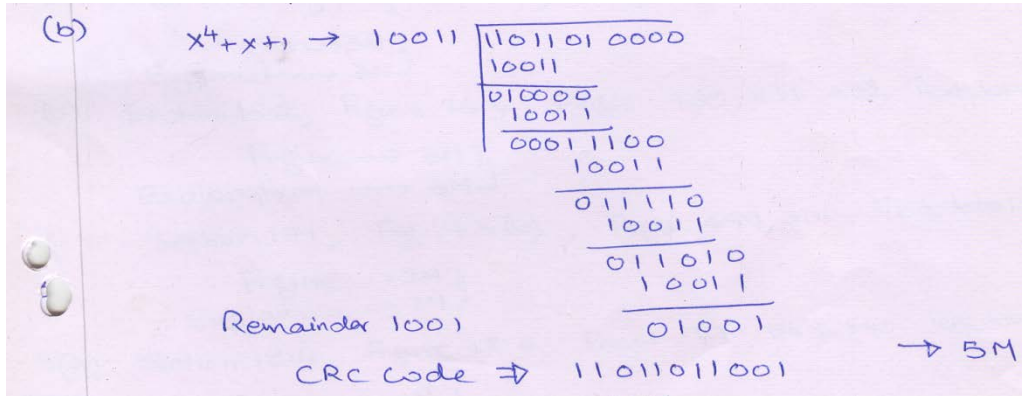 (b) x⁴+x+1 → 10011 1101101 0000
10011
010000
10011
00011100
10011
011110
10011
011010
10011
Remainder 1001 01001
→ 5M
CRC code ⇒ 11011011001